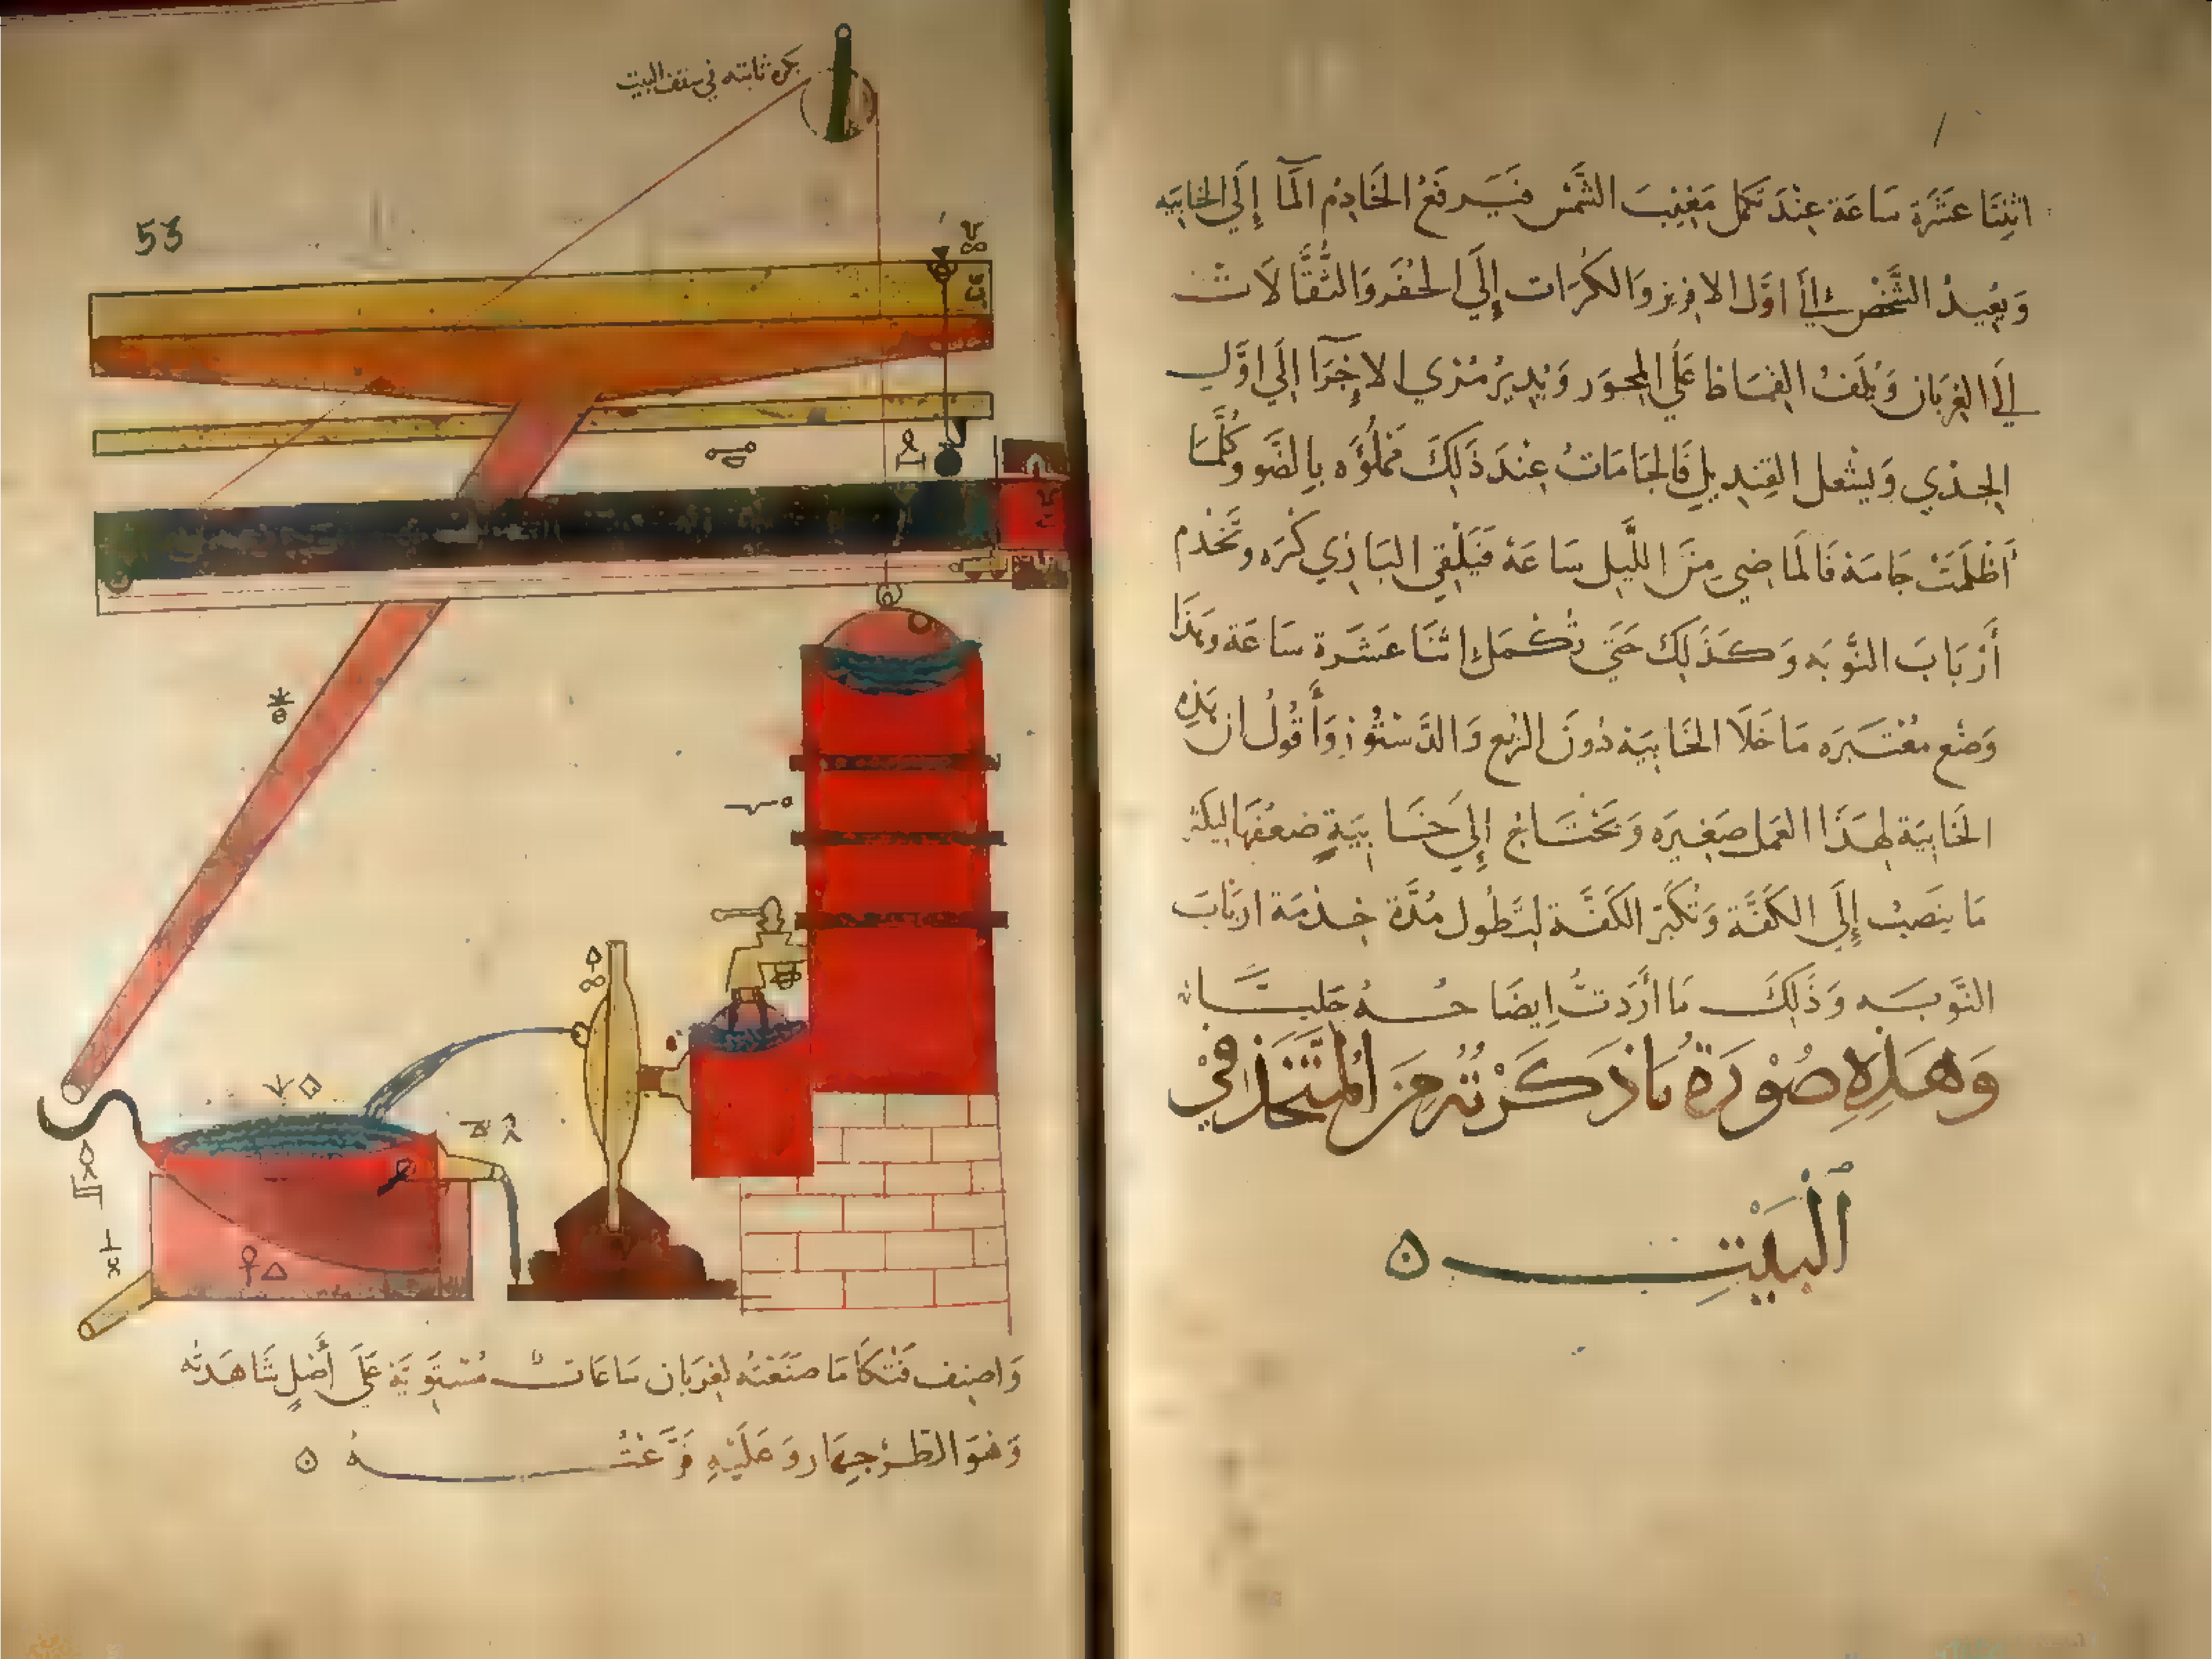 اثنتا عشرة ساعة عند تكمل مغيب الشمس فيرفع الخادم الما إلى الخابيه
ويعيد الشخص إلى اول الافريز والكرات إلى الحفر والثقالات
إلى الغربان ويلف القماط على المحور ويدير مري الاجرا إلى اول
الجدي ويشعل القنديل فالجامات عند ذلك مملوه بالضو وكلما
أظلمت جامة فالماضي من الليل ساعة فيلقي البازي كره وتخدم
أرباب النوبه وكذلك حتى تكمل اثنا عشرة ساعة وهذا
وضع معتبره ما خلا الخابية دون الربع والدستور وأقول ان هذه
الخابية لهذا العمل صغيره وتحتاج إلى خابية ضعفها ليكثر
ما ينصب إلى الكفة وتكبر الكفة لتطول مدة خدمة ارباب
النوبه وذلك ما أردت ايضاحه جليا
وهذه صورة ما ذكرته من المتخذ في
البيت ه
بكره ثابته في سقف البيت
53
واصف فنكا ما صنعته لغربان ساعات مستوية على أصل شاهدته
وهو الطرجهار وعليه فرعته ه